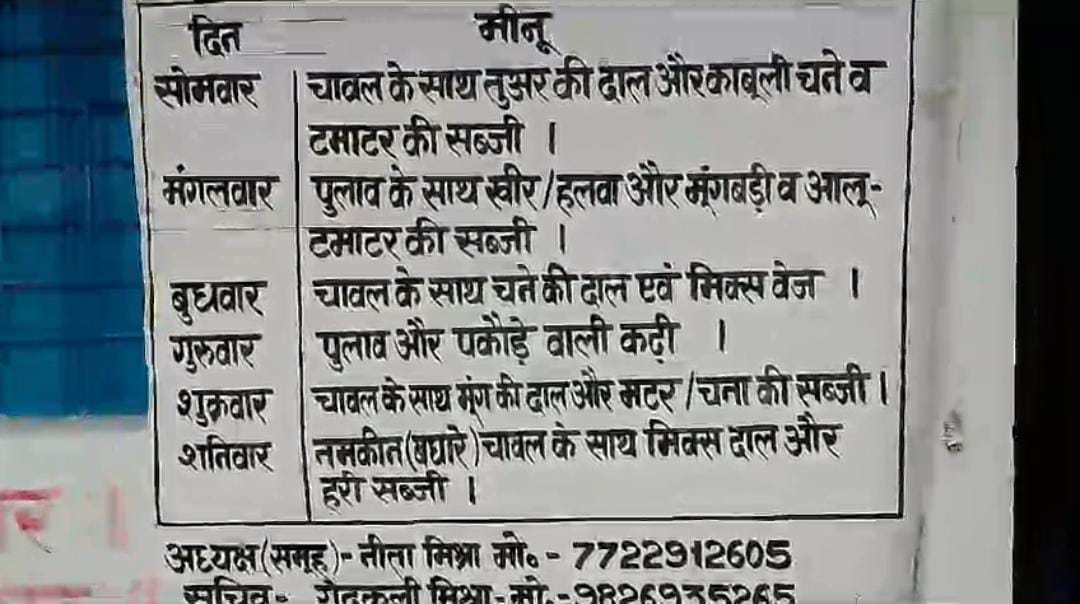 दिन मीनू
सोमवार चावल के साथ तुअर की दाल और काबूली चने व
टमाटर की सब्जी ।
मंगलवार पुलाव के साथ खीर/हलवा और मूंगबड़ी व आलू-
टमाटर की सब्जी ।
बुधवार चावल के साथ चने की दाल एवं मिक्स वेज ।
गुरुवार पुलाव और पकौड़े वाली कढ़ी ।
शुक्रवार चावल के साथ मूंग की दाल और मटर/चना की सब्जी ।
शनिवार नमकीन(बघारे) चावल के साथ मिक्स दाल और
हरी सब्जी ।
अध्यक्ष(समूह)- नीता मिश्रा मो॰- 7722912605
सचिव- गेंदकली मिश्रा- मो॰-9826935265